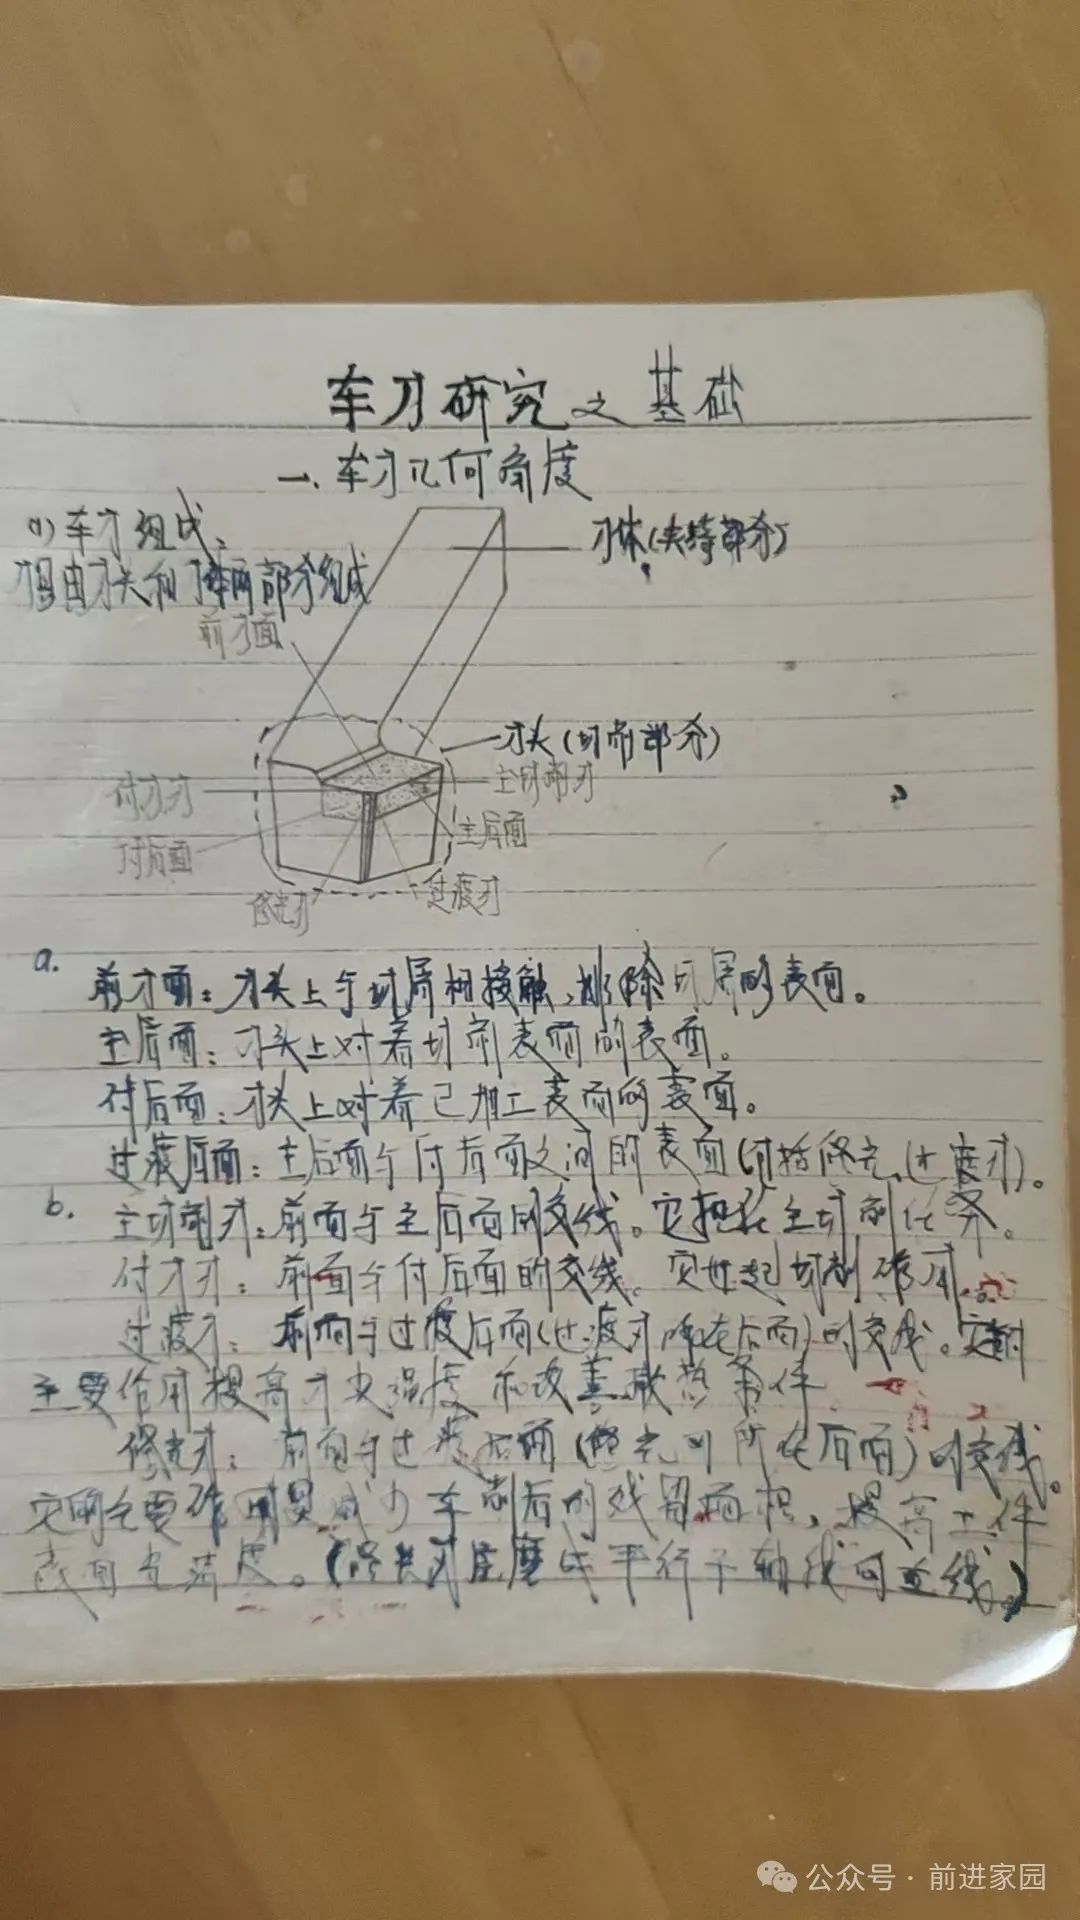 车刀研究之基础
一、车刀几何角度
(1)车刀组成:
刀体(夹持部分)
是由刀头和刀体两部分组成
前刀面
刀头(切削部分)
付刀刃
主切削刃
主后面
付后面
修光刃
过渡刃
a.
前刀面:刀头上与切屑相接触,排除切屑的表面。
主后面:刀头上对着切削表面的表面。
付后面:刀头上对着已加工表面的表面。
过渡后面:主后面与付后面之间的表面(包括修光、过渡刃)。
b.
主切削刃:前面与主后面的交线。它担任主切削任务。
付刀刃:前面与付后面的交线。它也起切削作用。
过渡刃:前面与过渡后面(过渡刃所在后面)的交线。它的
主要作用提高刀尖强度和改善散热条件
修光刃:前面与过渡后面(修光刃所在后面)的交线。
它的主要作用是减少车削后的残留面积,提高工件
表面光洁度。(修光刃应磨成平行于轴线的直线。)
公众号·前进家园